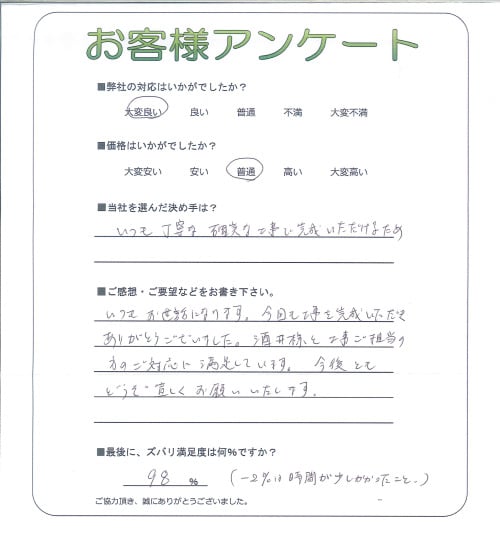 お客様アンケート
■弊社の対応はいかがでしたか？
大変良い 良い 普通 不満 大変不満
■価格はいかがでしたか？
大変安い 安い 普通 高い 大変高い
■当社を選んだ決め手は？
いつも丁寧な確実な工事で完成いただけるため
■ご感想・ご要望などをお書き下さい。
いつもお世話になります。今回も工事を完成いただき
ありがとうございました。酒井様と工事ご担当の
方のご対応に満足しています。今後とも
どうぞ宜しくお願いいたします。
■最後に、ズバリ満足度は何％ですか？
98 % (-2%は時間が少しかかったこと。)
ご協力頂き、誠にありがとうございました。